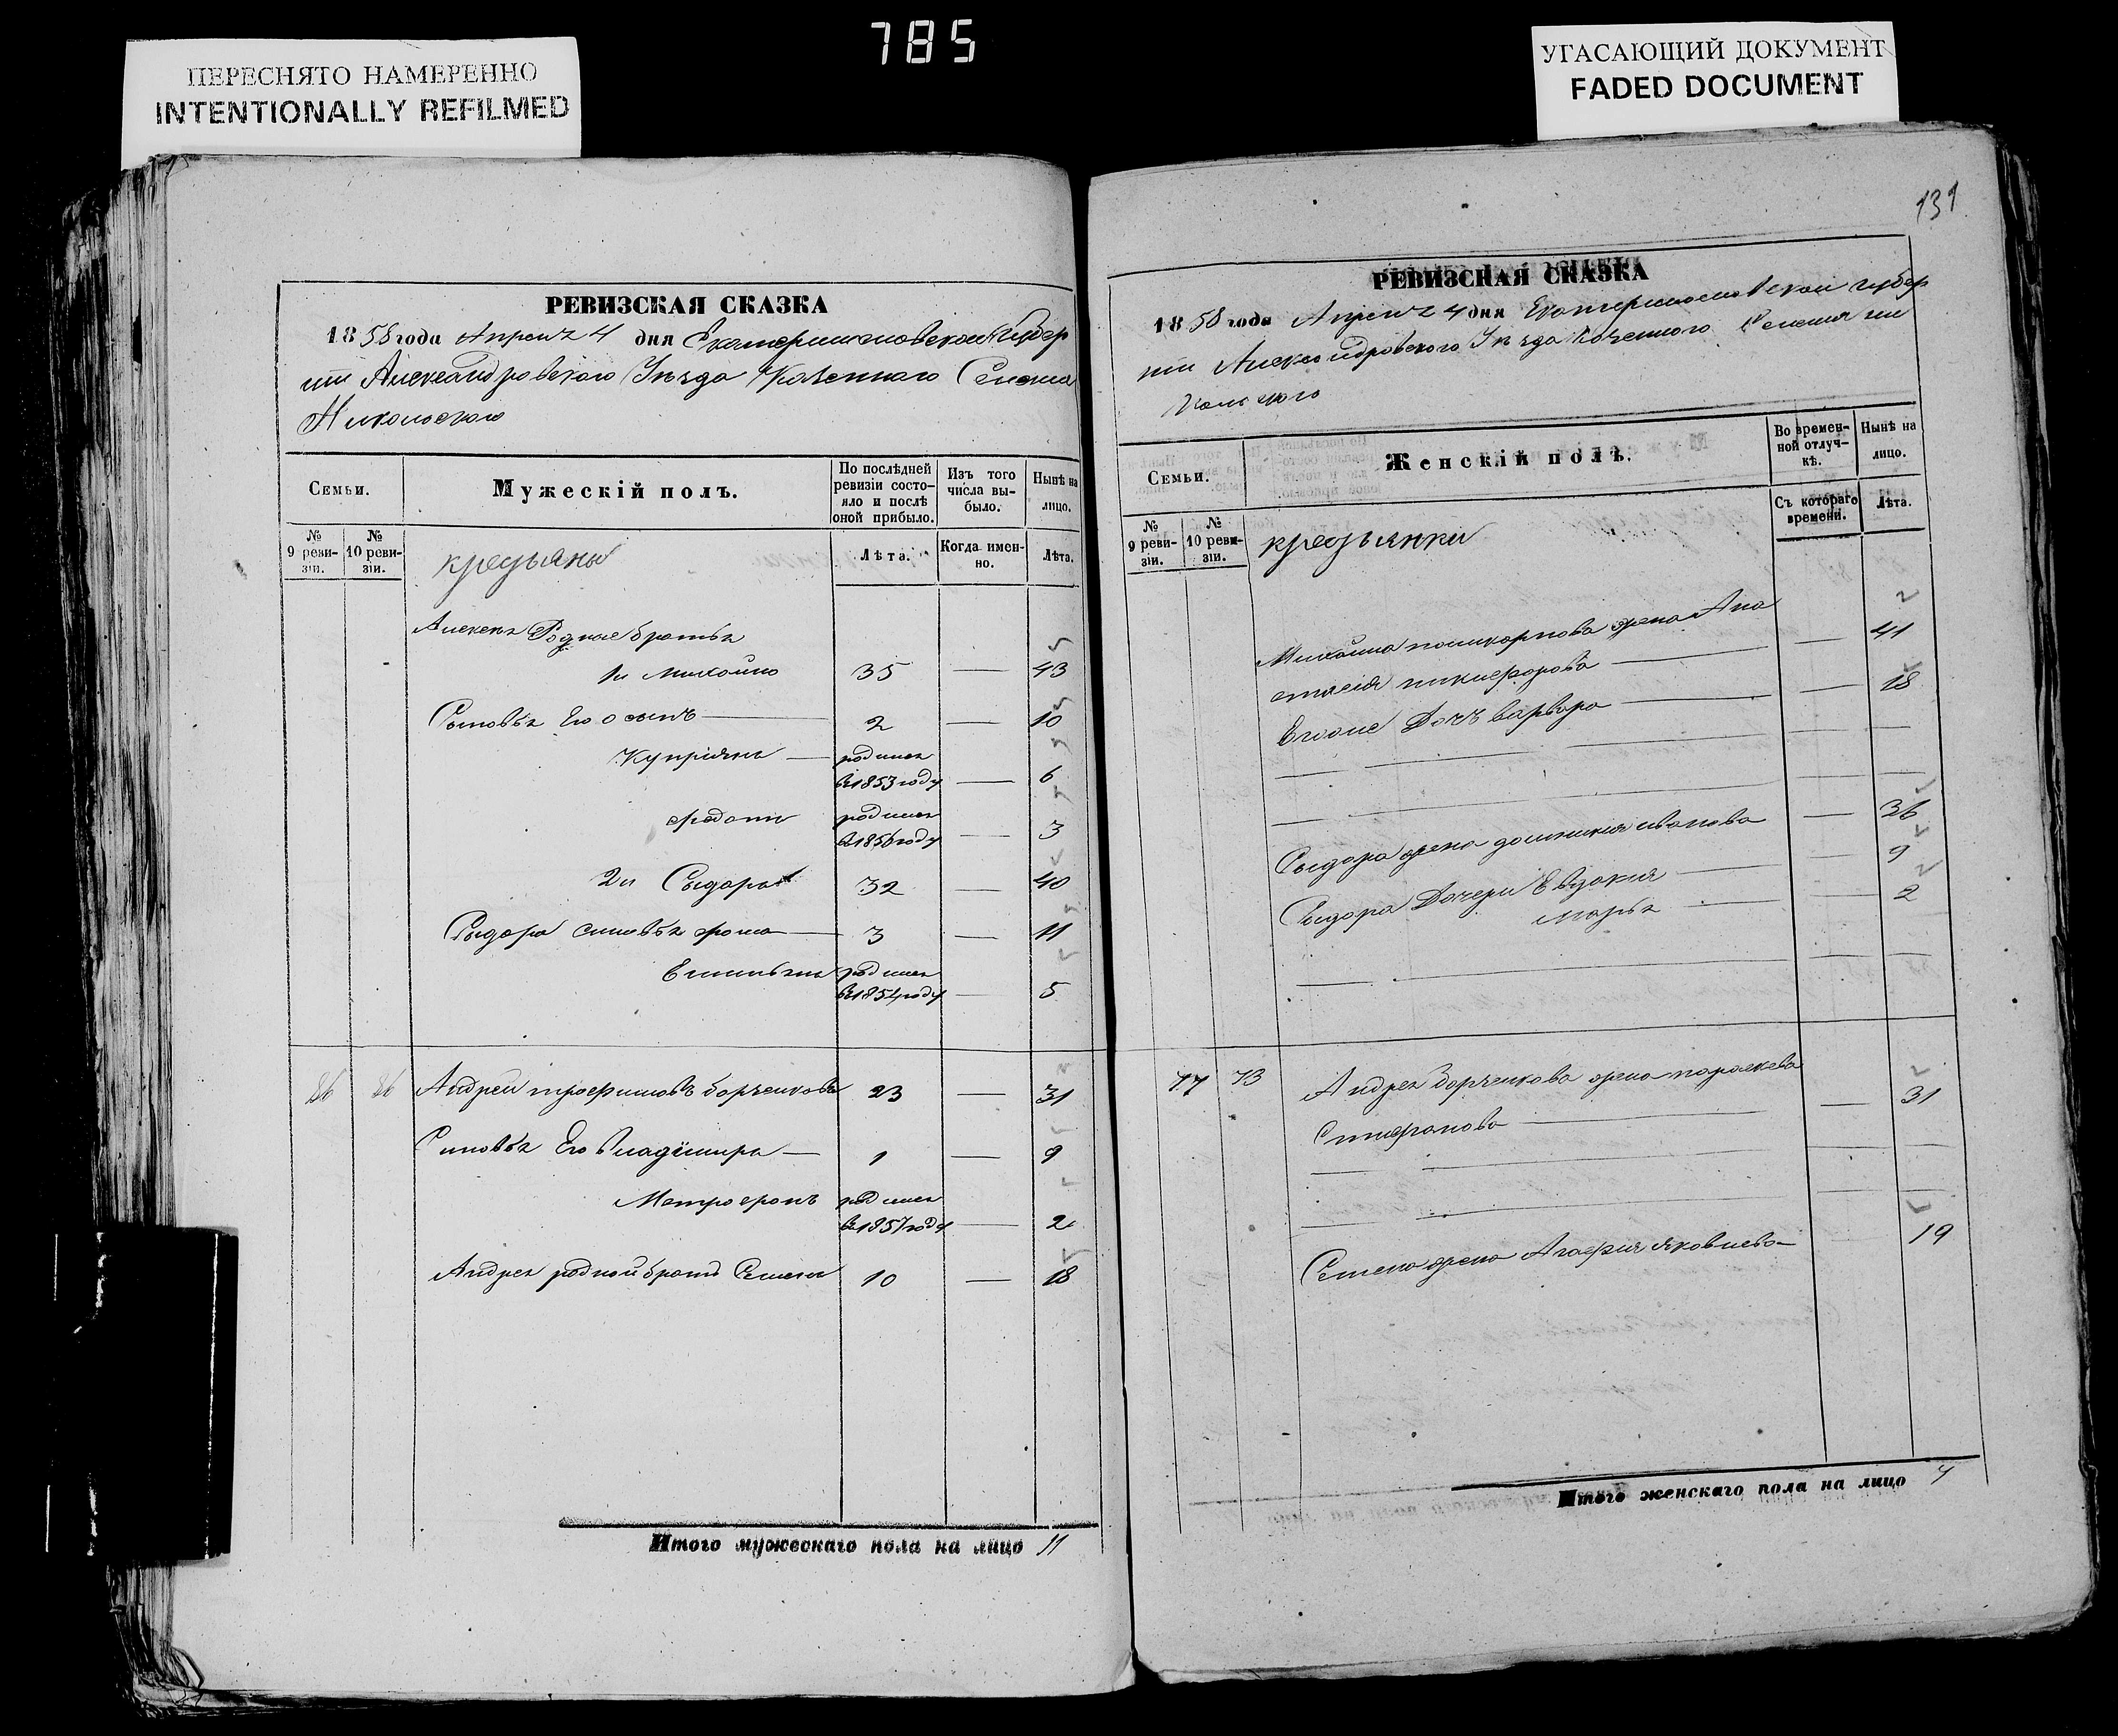 785
ПЕРЕСНЯТО НАМЕРЕННО
INTENTIONALLY REFILMED
УГАСАЮЩИЙ ДОКУМЕНТ
FADED DOCUMENT
РЕВИЗСКАЯ СКАЗКА
1858 года Апреля 4 дня Екатеринославской Губер
нии Александровского Уезда Казенного Селения
Никольского
Семьи.
Мужескій полъ.
По послѣдней ревизіи состо-
яло и послѣ
оной прибыло.
Изъ того
числа вы-
было.
Нынѣ на
лицо.
№
9 реви-
зіи.
№
10 реви-
зіи.
крезьяны
Лѣта.
Когда имен-
но.
Лѣта.
Алексея Родные братья
1й Михайло 35 — 43
Сыновья Его осипъ — 2 — 10
Куприянъ — родился
въ 1853 году — 6
федотъ родился
въ 1856 году — 3
2й Сыдоръ 32 — 40
Сыдора сыновья фома — 3 — 11
Емильянъ родился
въ 1854 году — 5
86 86 Андрей трофимовъ борченковъ 23 — 31
Сыновья Его Владимиръ — 1 — 9
Митрофонъ родился
въ 1857 году — 2
Андрея родной братъ Семенъ 10 — 18
Итого мужескаго пола на лицо 11
131
РЕВИЗСКАЯ СКАЗКА
1858 года Апреля 4 дня Екатеринославской губер
нии Александровского Уезда Казенного Селения ни
кольского
Семьи.
Женскій полъ.
Во времен-
ной отлуч-
кѣ.
Нынѣ на
лицо.
№
9 реви-
зіи.
№
10 реви-
зіи.
крезьянки
Съ котораго
времени.
Лѣта.
Михайла поликарпова жена Ана
стасия никифорова — — 41
Егоже Дочь варвара — — 18
Сыдора жена домникия иванова — 36
Сыдора Дочери Евдокия — — 9
Марья — — 2
77 73 Андрея борченкова жена параскева
Стифанова — — 31
Семена жена Агафия яковлева — 19
Итого женскаго пола на лицо 7